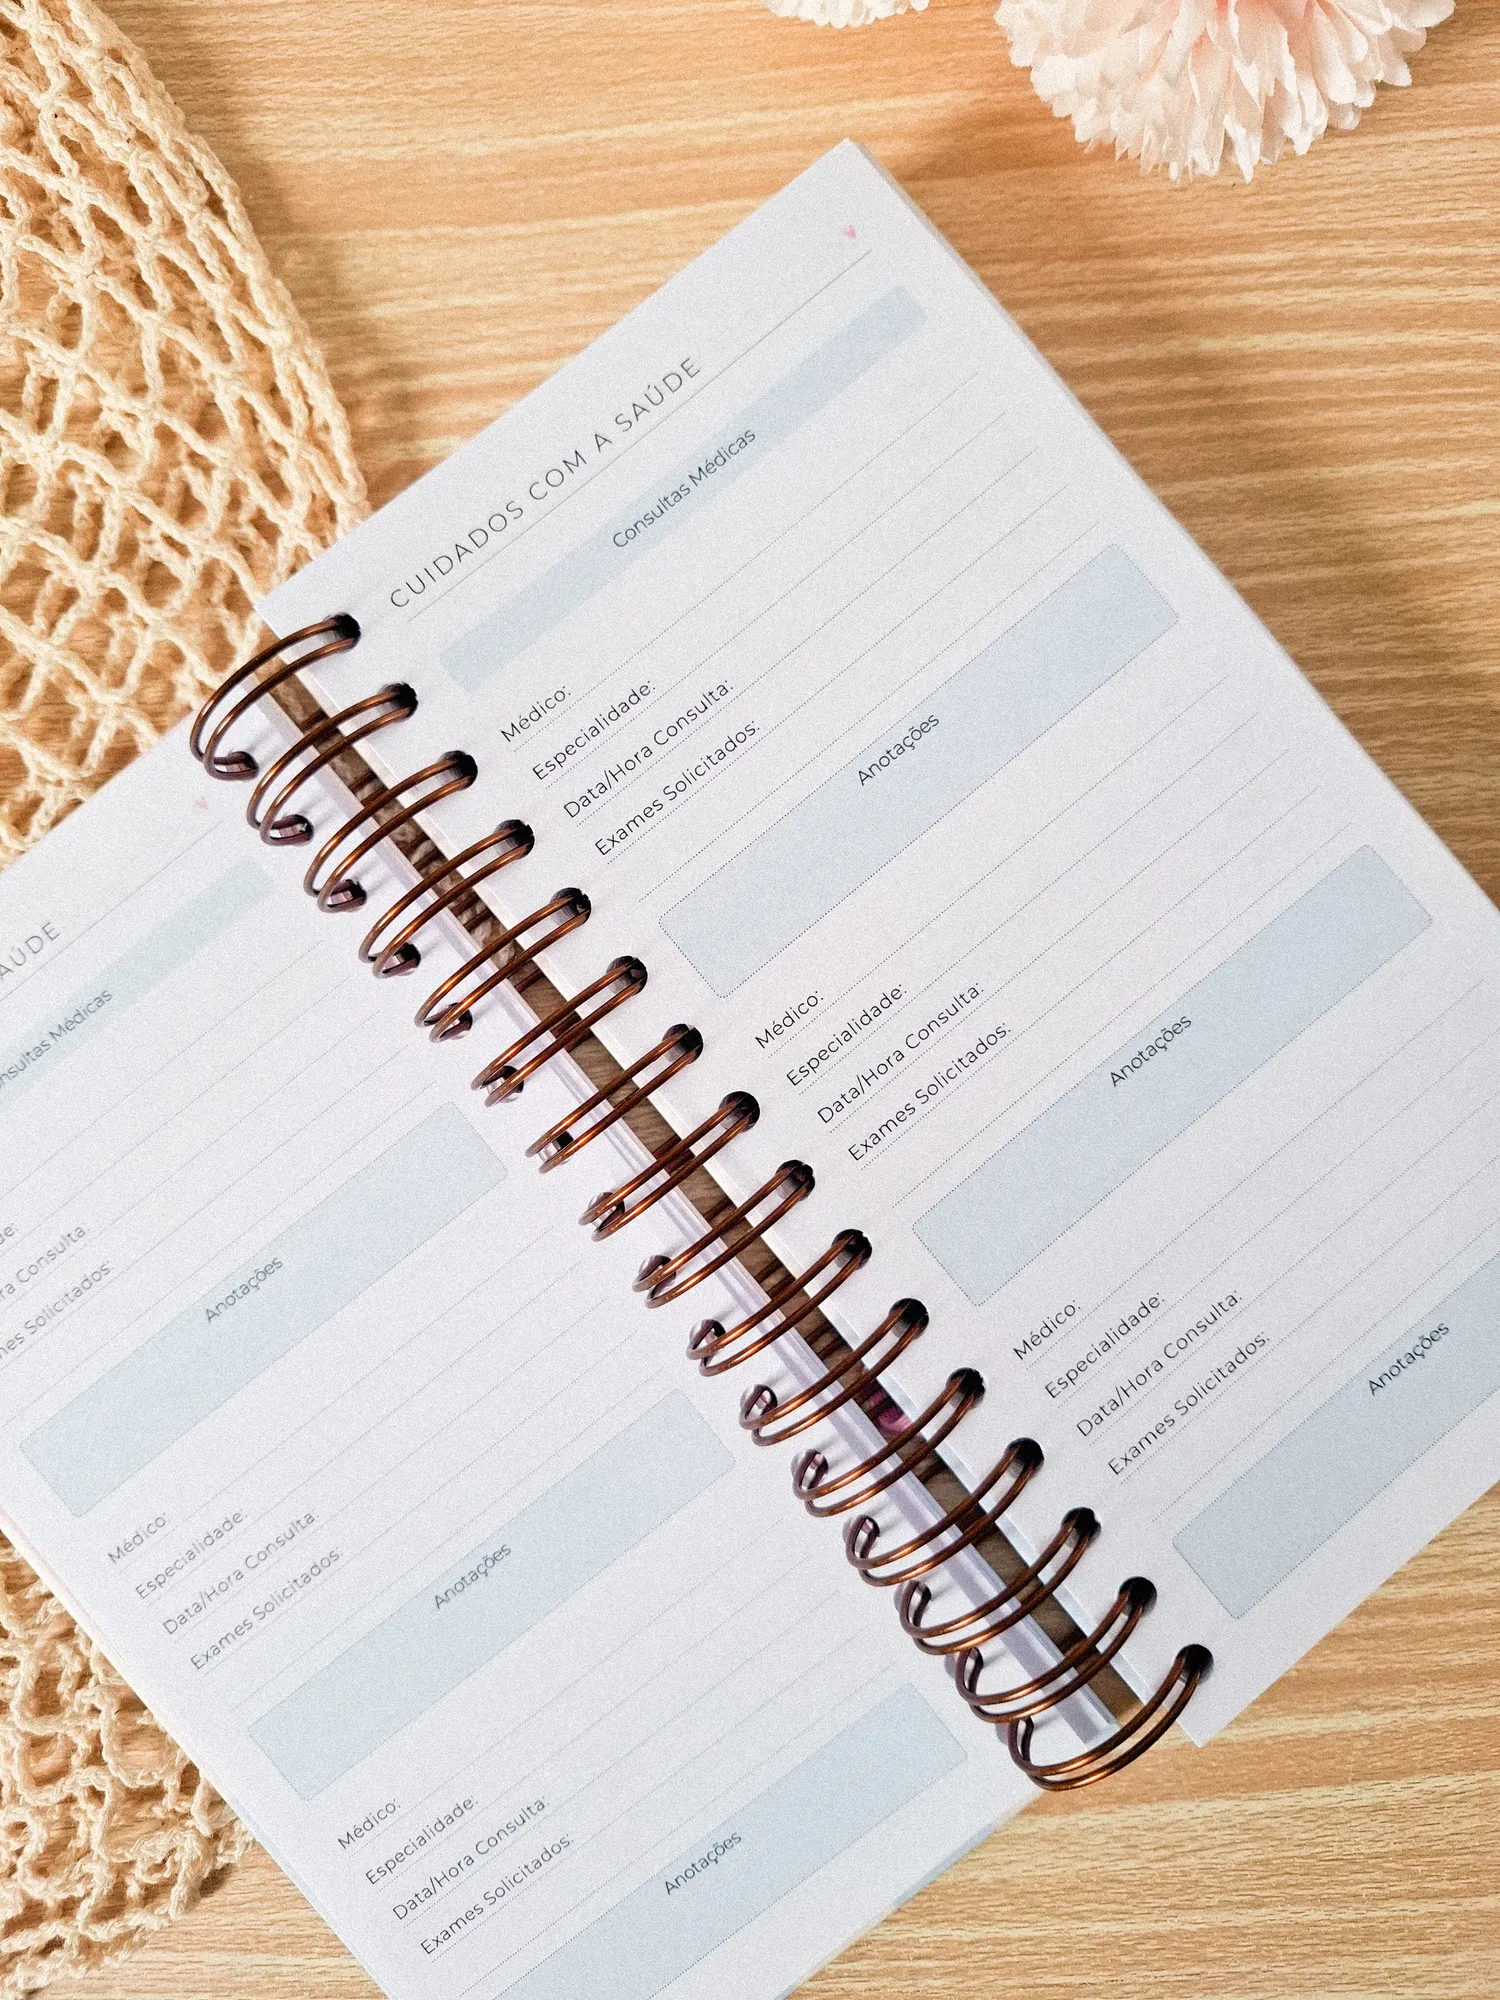 AÚDE
Consultas Médicas
Consulta:
Exames Solicitados:
Anotações
Médico:
Especialidade:
Data/Hora Consulta:
Exames Solicitados:
Anotações
Médico:
Especialidade:
Data/Hora Consulta:
Exames Solicitados:
Anotações
CUIDADOS COM A SAÚDE
Consultas Médicas
Médico:
Especialidade:
Data/Hora Consulta:
Exames Solicitados:
Anotações
Médico:
Especialidade:
Data/Hora Consulta:
Exames Solicitados:
Anotações
Médico:
Especialidade:
Data/Hora Consulta:
Exames Solicitados:
Anotações